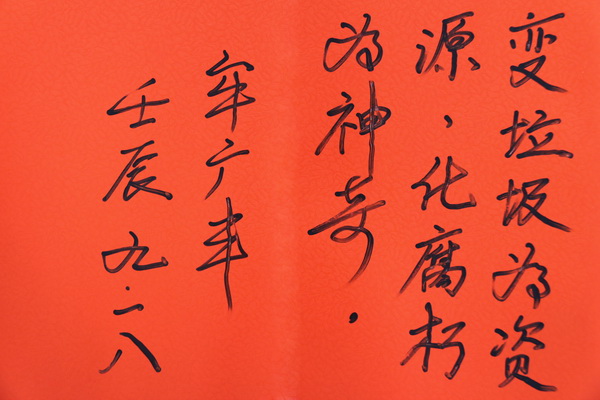 变垃圾为资
源、化腐朽
为神奇.
牟广丰
壬辰 九.二八